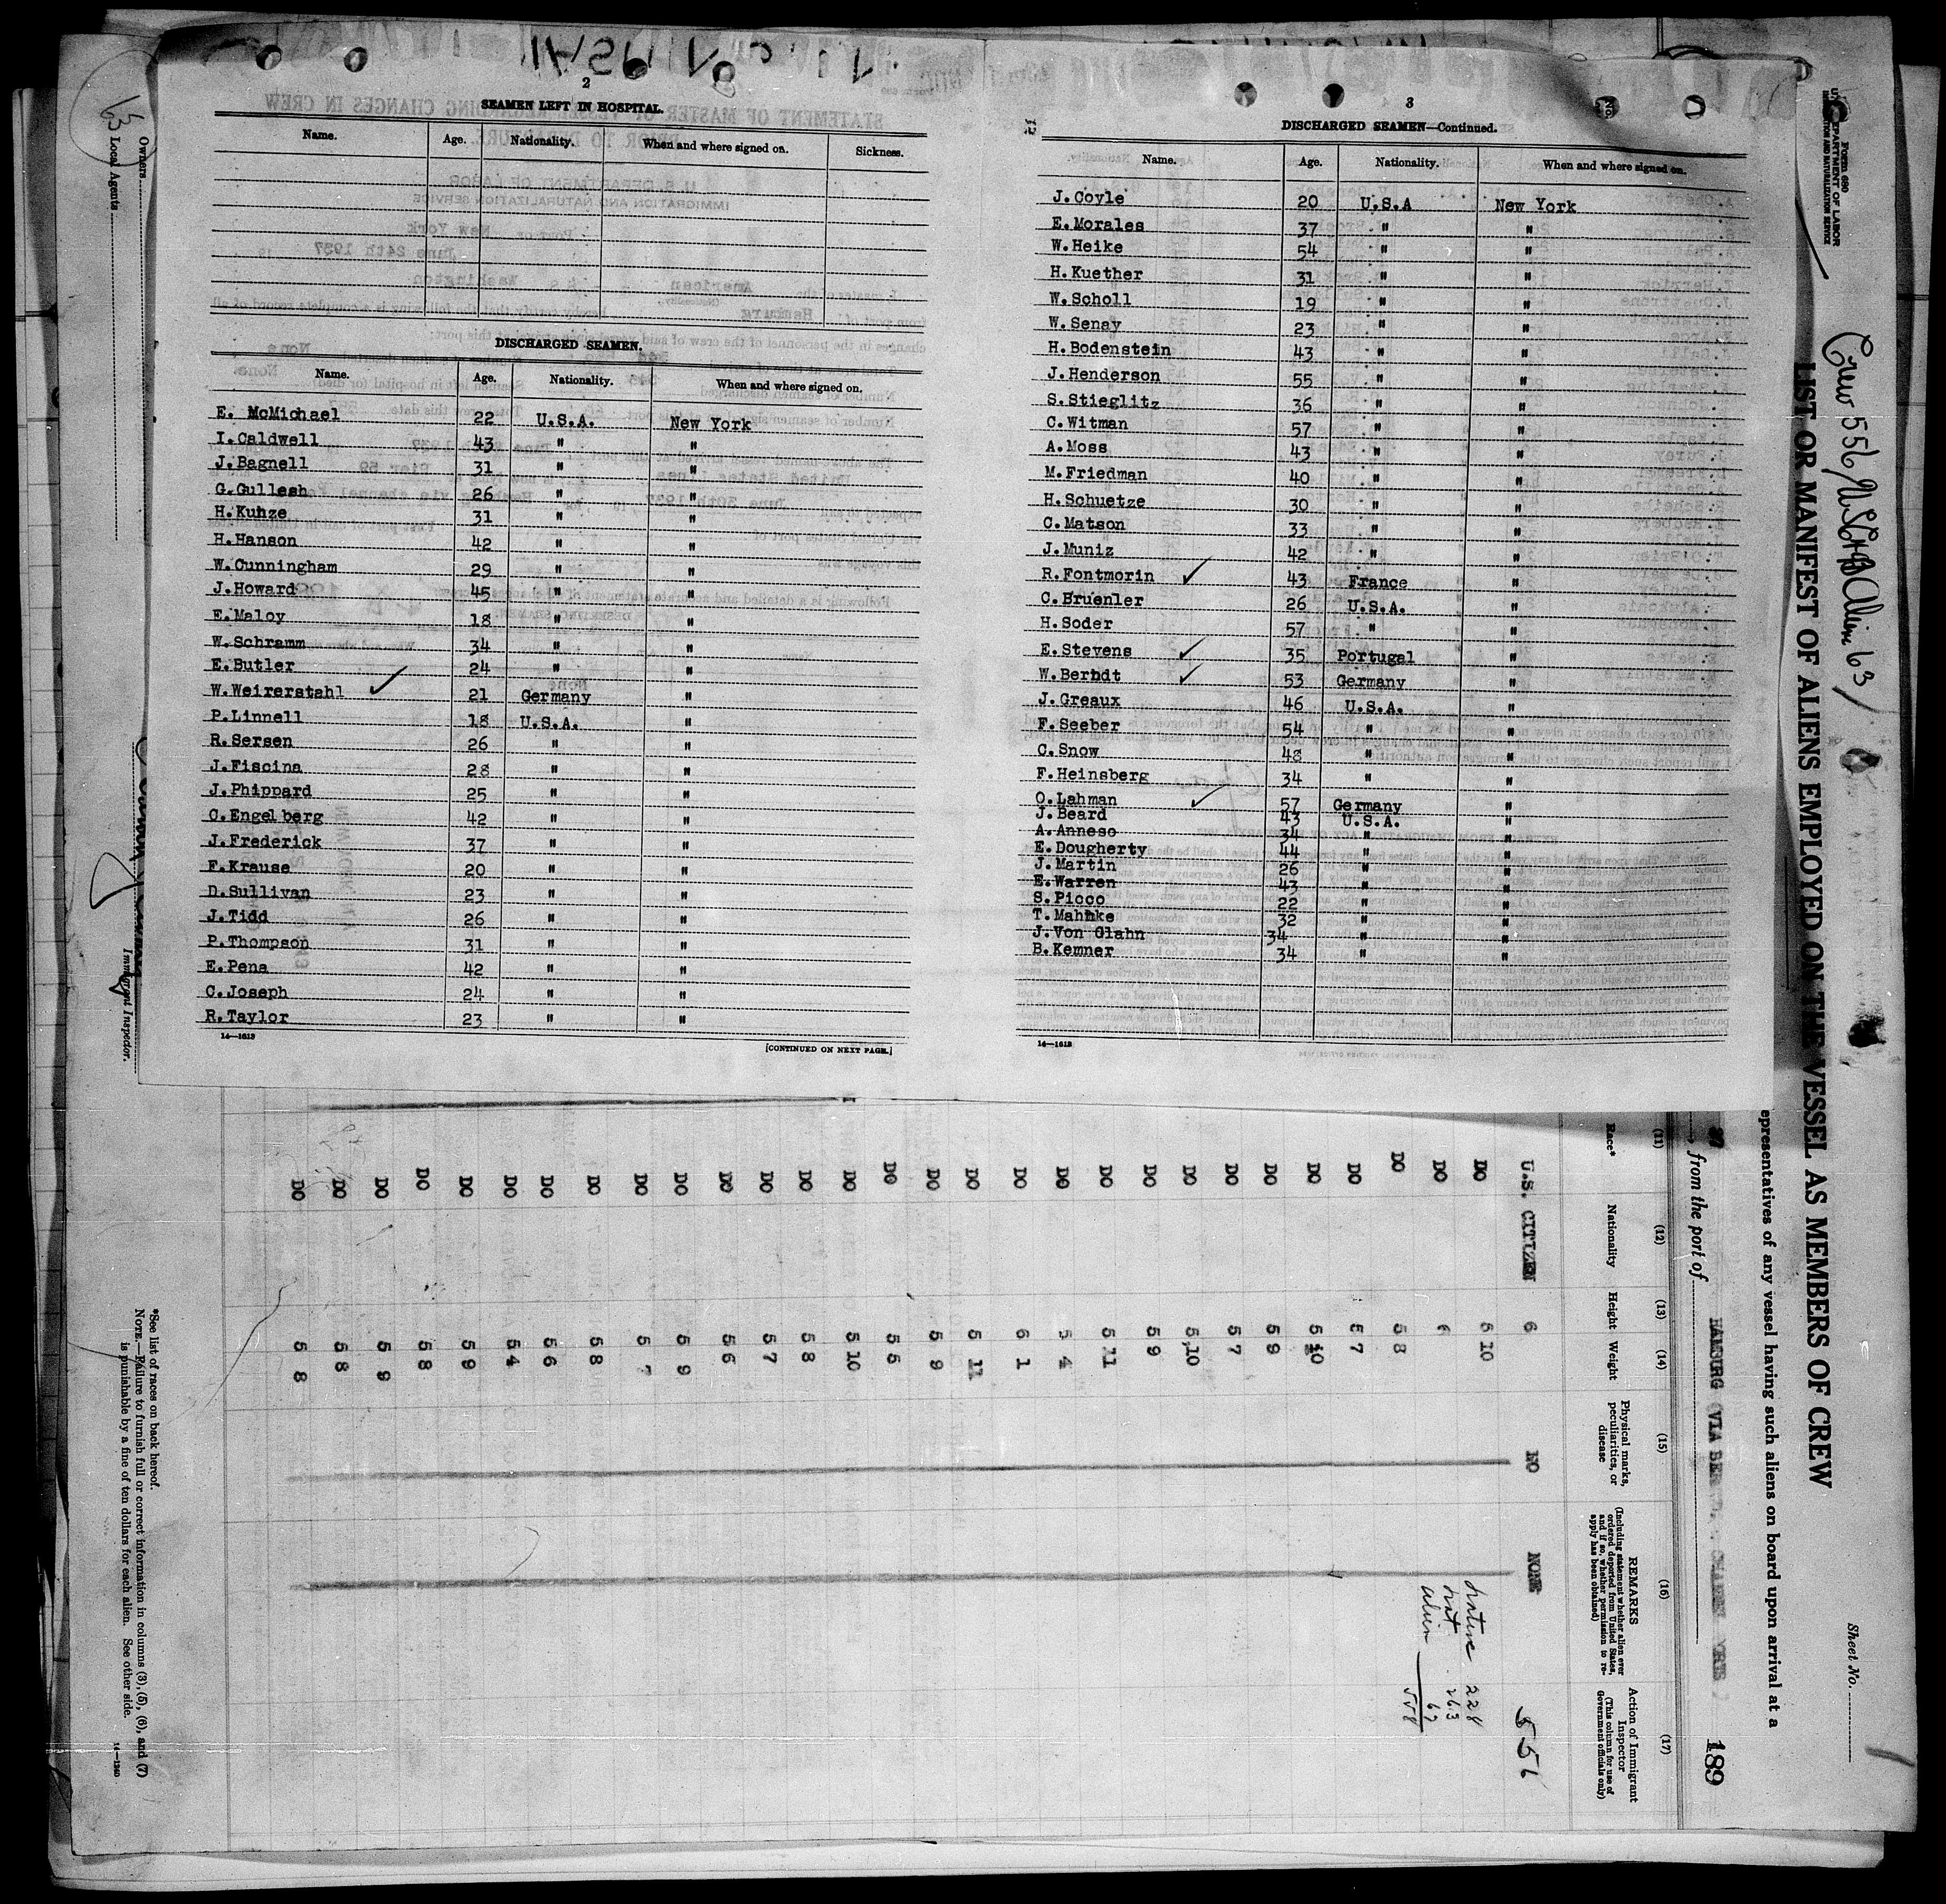 2
SEAMEN LEFT IN HOSPITAL.
Name. Age. Nationality. When and where signed on. Sickness.
DISCHARGED SEAMEN.
Name. Age. Nationality. When and where signed on.
E. McMichael 22 U.S.A. New York
I.Caldwell 43 " "
J.Bagnell 31 " "
G.Gullesh 26 " "
H.Kuhze 31 " "
H.Hanson 42 " "
W.Cunningham 29 " "
J.Howard 45 " "
E.Maloy 18 " "
W.Schramm 34 " "
E.Butler 24 " "
W.Weirerstahl 21 Germany "
P.Linnell 18 U.S.A. "
R.Sersen 26 " "
J.Fiscina 28 " "
J.Phippard 25 " "
C.Engelberg 42 " "
J.Frederick 37 " "
F.Krause 20 " "
D.Sullivan 23 " "
J.Tidd 26 " "
P.Thompson 31 " "
E.Pena 42 " "
C.Joseph 24 " "
R.Taylor 23 " "
14—1613
[CONTINUED ON NEXT PAGE.]
3
DISCHARGED SEAMEN—Continued.
Name. Age. Nationality. When and where signed on.
J.Coyle 20 U.S.A New York
E.Morales 37 " "
W.Heike 54 " "
H.Kuether 31 " "
W.Scholl 19 " "
W.Senay 23 " "
H.Bodenstein 43 " "
J.Henderson 55 " "
S.Stieglitz 36 " "
C.Witman 57 " "
A.Moss 43 " "
M.Friedman 40 " "
H.Schuetze 30 " "
C.Matson 33 " "
J.Muniz 42 " "
R.Fontmorin 43 France "
C.Bruenler 26 U.S.A. "
H.Soder 57 " "
E.Stevens 35 Portugal "
W.Berndt 53 Germany "
J.Greaux 46 U.S.A. "
F.Seeber 54 " "
C.Snow 48 " "
F.Heinsberg 34 " "
O.Lahman 57 Germany "
J.Beard 43 U.S.A. "
A.Anneso 34 " "
E.Dougherty 44 " "
J.Martin 26 " "
E.Warren 43 " "
S.Picco 22 " "
T.Mahnke 32 " "
J.Von Glahn 34 " "
B.Kemner 34 " "
14—1613
Form 680
DEPARTMENT OF LABOR
IMMIGRATION AND NATURALIZATION SERVICE
Crew 556
Alien 63
LIST OR MANIFEST OF ALIENS EMPLOYED ON THE VESSEL AS MEMBERS OF CREW
Sheet No.
representatives of any vessel having such aliens on board upon arrival at a
from the port of HAMBURG 189
(11) (12) (13) (14) (15) (16) (17)
Race* Nationality Height Weight
Physical marks, peculiarities, or disease
REMARKS
(Including statement whether alien ever ordered deported from United States, and if so, whether permission to reapply has been obtained)
Action of Immigrant Inspector
(This column for use of Government officials only)
U.S. CITIZEN 6 NO NONE 556
DO 5 10
DO 6
DO 5 8
DO 5 7
DO 5 10
DO 5 9
DO 5 7
DO 5,10
DO 5 9
DO 5 11
DO 5 4
DO 6 1
DO 5 11
DO 5 9
DO 5 5
DO 5 10
DO 5 8
DO 5 7
DO 5 6
DO 5 9
DO 5 7
DO 5 8
DO 5 6
DO 5 4
DO 5 9
DO 5 8
DO 5 9
DO 5 8
DO 5 8
Native 228
Nat 263
alien
558
*See list of races on back hereof.
NOTE.—Failure to furnish full or correct information in columns (3), (5), (6), and (7)
is punishable by a fine of ten dollars for each alien. See other side.
14—1240
63
Owners
Local Agents
Immigrant Inspector.